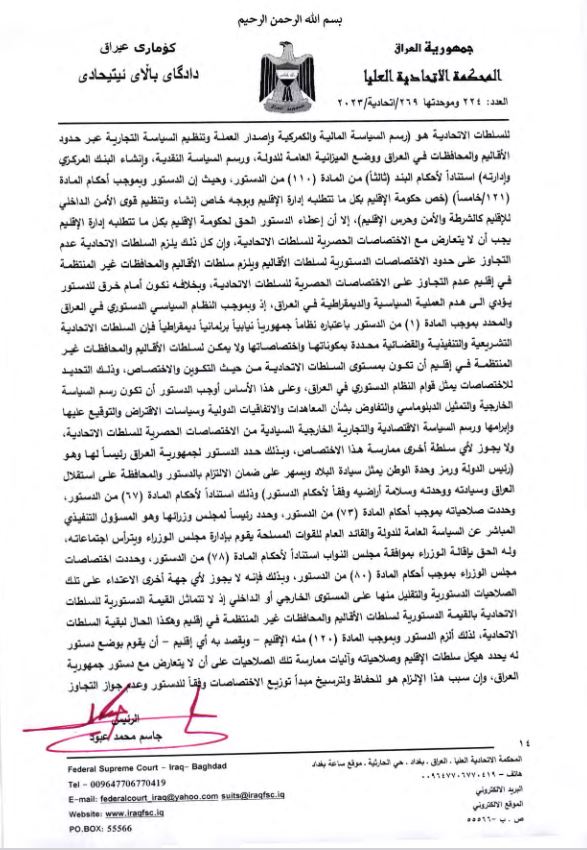 بسم الله الرحمن الرحيم
جمهورية العراق
المحكمة الاتحادية العليا
العدد: ٢٢٤ وموحدتها ٢٦٩/اتحادية/٢٠٢٣
كۆماری عیراق
دادگای باڵای ئیتیحادی
للسلطات الاتحادية هو (رسم السياسة المالية والكمركية وإصدار العملة وتنظيم السياسة التجارية عبر حدود
الأقاليم والمحافظات في العراق ووضع الميزانية العامة للدولة، ورسم السياسة النقدية، وإنشاء البنك المركزي
وإدارته) استناداً لأحكام البند (ثالثاً) من المادة (١١٠) من الدستور، وحيث إن الدستور وبموجب أحكام المادة
(١٢١/خامساً) (خص حكومة الإقليم بكل ما تتطلبه إدارة الإقليم وبوجه خاص إنشاء وتنظيم قوى الأمن الداخلي
للإقليم كالشرطة والأمن وحرس الإقليم)، إلا أن إعطاء الدستور الحق لحكومة الإقليم بكل ما تتطلبه إدارة الإقليم
يجب أن لا يتعارض مع الاختصاصات الحصرية للسلطات الاتحادية، وإن كل ذلك يلزم السلطات الاتحادية عدم
التجاوز على حدود الاختصاصات الدستورية لسلطات الأقاليم ويلزم سلطات الأقاليم والمحافظات غير المنتظمة
في إقليم عدم التجاوز على الاختصاصات الحصرية للسلطات الاتحادية، وبخلافه نكون أمام خرق للدستور
يؤدي الى هدم العملية السياسية والديمقراطية في العراق، إذ وبموجب النظام السياسي الدستوري في العراق
والمحدد بموجب المادة (١) من الدستور باعتباره نظاماً جمهورياً نيابياً برلمانياً ديمقراطياً فإن السلطات الاتحادية
التشريعية والتنفيذية والقضائية محددة بمكوناتها واختصاصاتها ولا يمكن لسلطات الأقاليم والمحافظات غير
المنتظمة في إقليم أن تكون بمستوى السلطات الاتحادية من حيث التكوين والاختصاص، وذلك التحديد
للاختصاصات يمثل قوام النظام الدستوري في العراق، وعلى هذا الأساس أوجب الدستور أن تكون رسم السياسة
الخارجية والتمثيل الدبلوماسي والتفاوض بشأن المعاهدات والاتفاقيات الدولية وسياسات الاقتراض والتوقيع عليها
وإبرامها ورسم السياسة الاقتصادية والتجارية الخارجية السيادية من الاختصاصات الحصرية للسلطات الاتحادية،
ولا يجوز لأي سلطة أخرى ممارسة هذا الاختصاص، وبذلك حدد الدستور لجمهورية العراق رئيساً لها وهو
(رئيس الدولة ورمز وحدة الوطن يمثل سيادة البلاد ويسهر على ضمان الالتزام بالدستور والمحافظة على استقلال
العراق وسيادته ووحدته وسلامة أراضيه وفقاً لأحكام الدستور) وذلك استناداً لأحكام المادة (٦٧) من الدستور،
وحددت صلاحياته بموجب أحكام المادة (٧٣) من الدستور، وحدد رئيساً لمجلس وزرائها وهو المسؤول التنفيذي
المباشر عن السياسة العامة للدولة والقائد العام للقوات المسلحة يقوم بإدارة مجلس الوزراء ويترأس اجتماعاته،
وله الحق بإقالة الوزراء بموافقة مجلس النواب استناداً لأحكام المادة (٧٨) من الدستور، وحددت اختصاصات
مجلس الوزراء بموجب أحكام المادة (٨٠) من الدستور، وبذلك فإنه لا يجوز لأي جهة أخرى الاعتداء على تلك
الصلاحيات الدستورية والتقليل منها على المستوى الخارجي أو الداخلي إذ لا تتماثل القيمة الدستورية للسلطات
الاتحادية بالقيمة الدستورية لسلطات الأقاليم والمحافظات غير المنتظمة في إقليم وهكذا الحال لبقية السلطات
الاتحادية، لذلك ألزم الدستور وبموجب المادة (١٢٠) منه الإقليم – ويقصد به أي إقليم – أن يقوم بوضع دستور
له يحدد هيكل سلطات الإقليم وصلاحياته وآليات ممارسة تلك الصلاحيات على أن لا يتعارض مع دستور جمهورية
العراق، وإن سبب هذا الإلزام هو للحفاظ ولترسيخ مبدأ توزيع الاختصاصات وفقاً للدستور وعدم جواز التجاوز
الرئيس
جاسم محمد عبود
١٤
المحكمة الاتحادية العليا . العراق . بغداد . حي الحارثية . موقع ساعة بغداد
هاتف – ٠٠٩٦٤٧٧٠٦٧٧٠٤١٩
البريد الالكتروني
الموقع الالكتروني
ص . ب – ٥٥٥٦٦
Federal Supreme Court – Iraq– Baghdad
Tel – 009647706770419
E-mail: federalcourt_iraq@yahoo.com suits@iraqfsc.iq
Website: www.iraqfsc.iq
PO.BOX: 55566